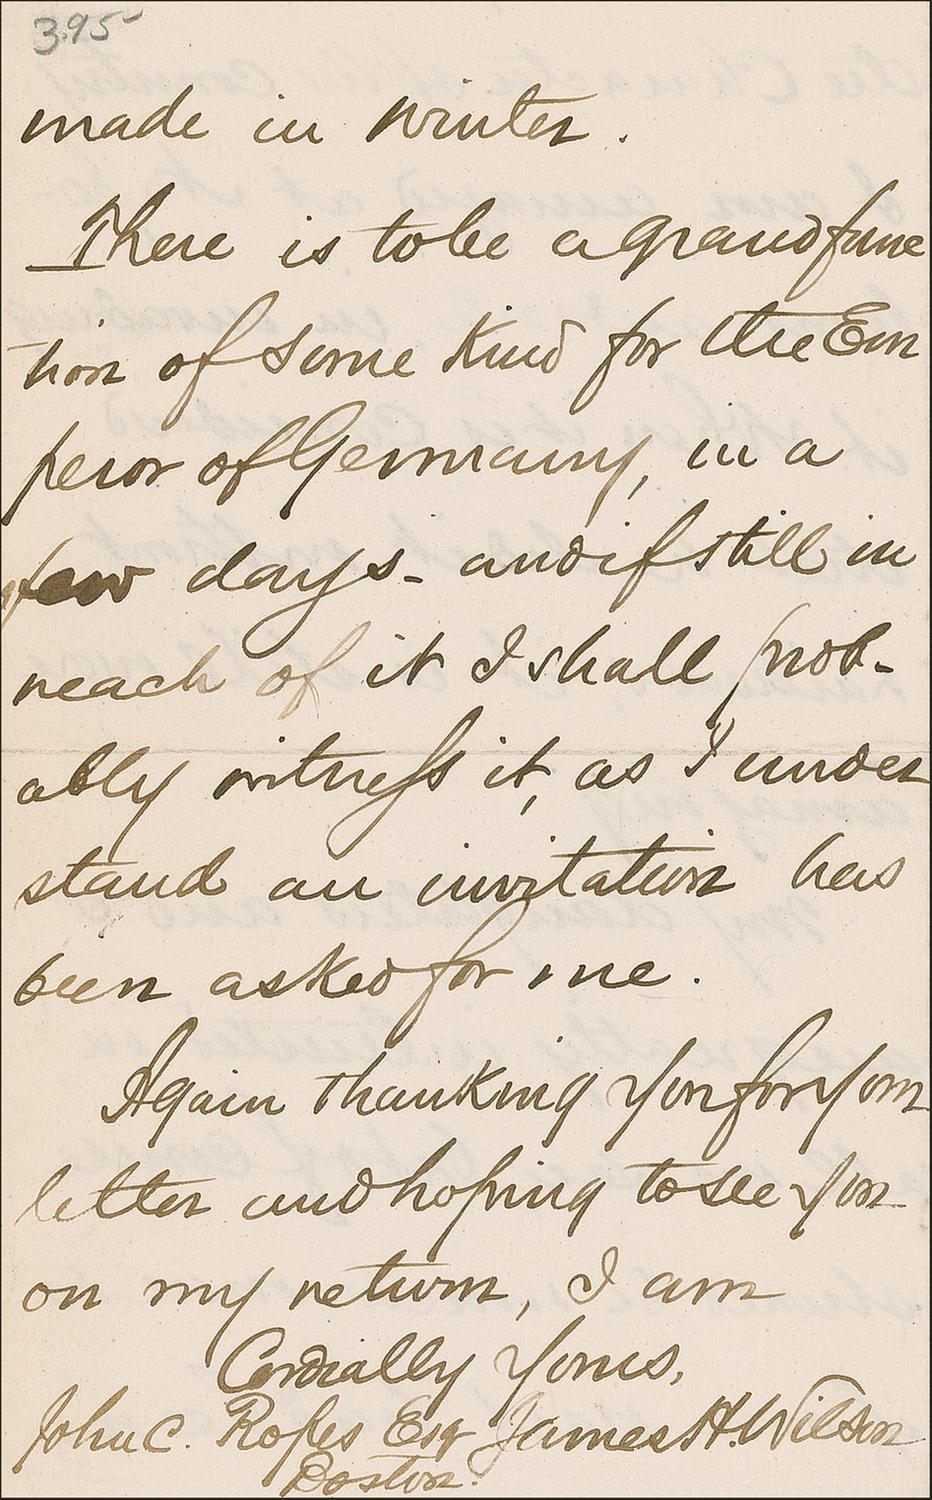 395
made in winter.
There is to be a grand func
tion of some kind for the Em
peror of Germany, in a
few days - and if still in
reach of it I shall prob-
ably witness it, as I under
stand an invitation has
been asked for me.
Again thanking you for your
letter and hoping to see you
on my return, I am
Cordially Yours,
John C. Ropes Esq James H. Wilson
Boston.